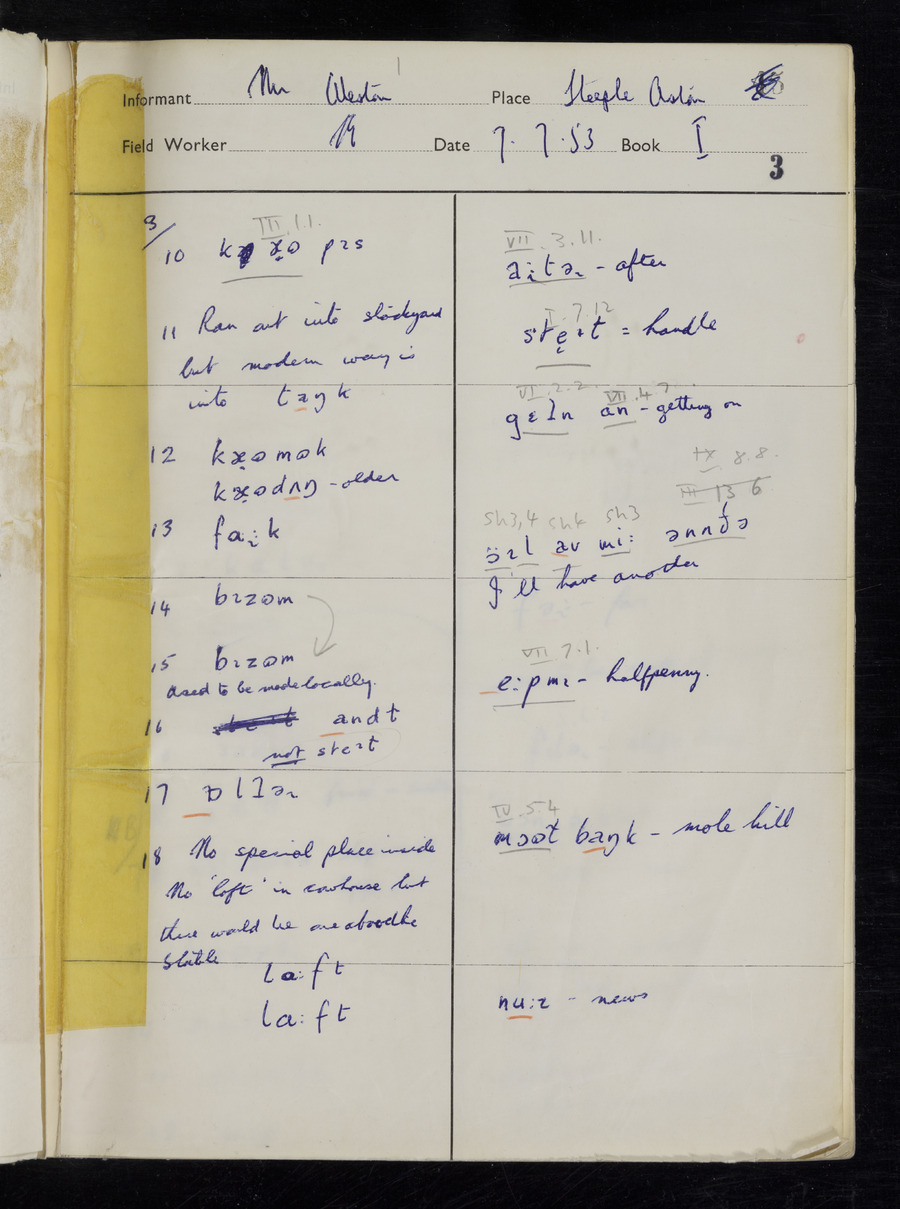 Informant Mr Weston Place Steeple Aston
Field Worker Date 7.7.53 Book I
3
3/
III.1.1.
10 pɪs
11 Ran out into stockyard
but modern way is
into taŋk
12
- older
13 faːk
14 bɪzəm
15 bɪzəm
Used to be made locally.
16 andt
not steɪt
17
18 No special place inside
No 'loft' in cowhouse but
there would be one above the
stable
laːft
lɑːft
VII.3.11.
- after
I.7.12
= handle
VI.2.2. VII.4.7
gɛʔn an - getting on
IX 8.8.
III 13 6
Sh3,4 Sh4 Sh3
av miː
I'll have another
VII.7.1.
eːpmɪ - halfpenny.
IV.5.4
baŋk - mole hill
nuːz - news